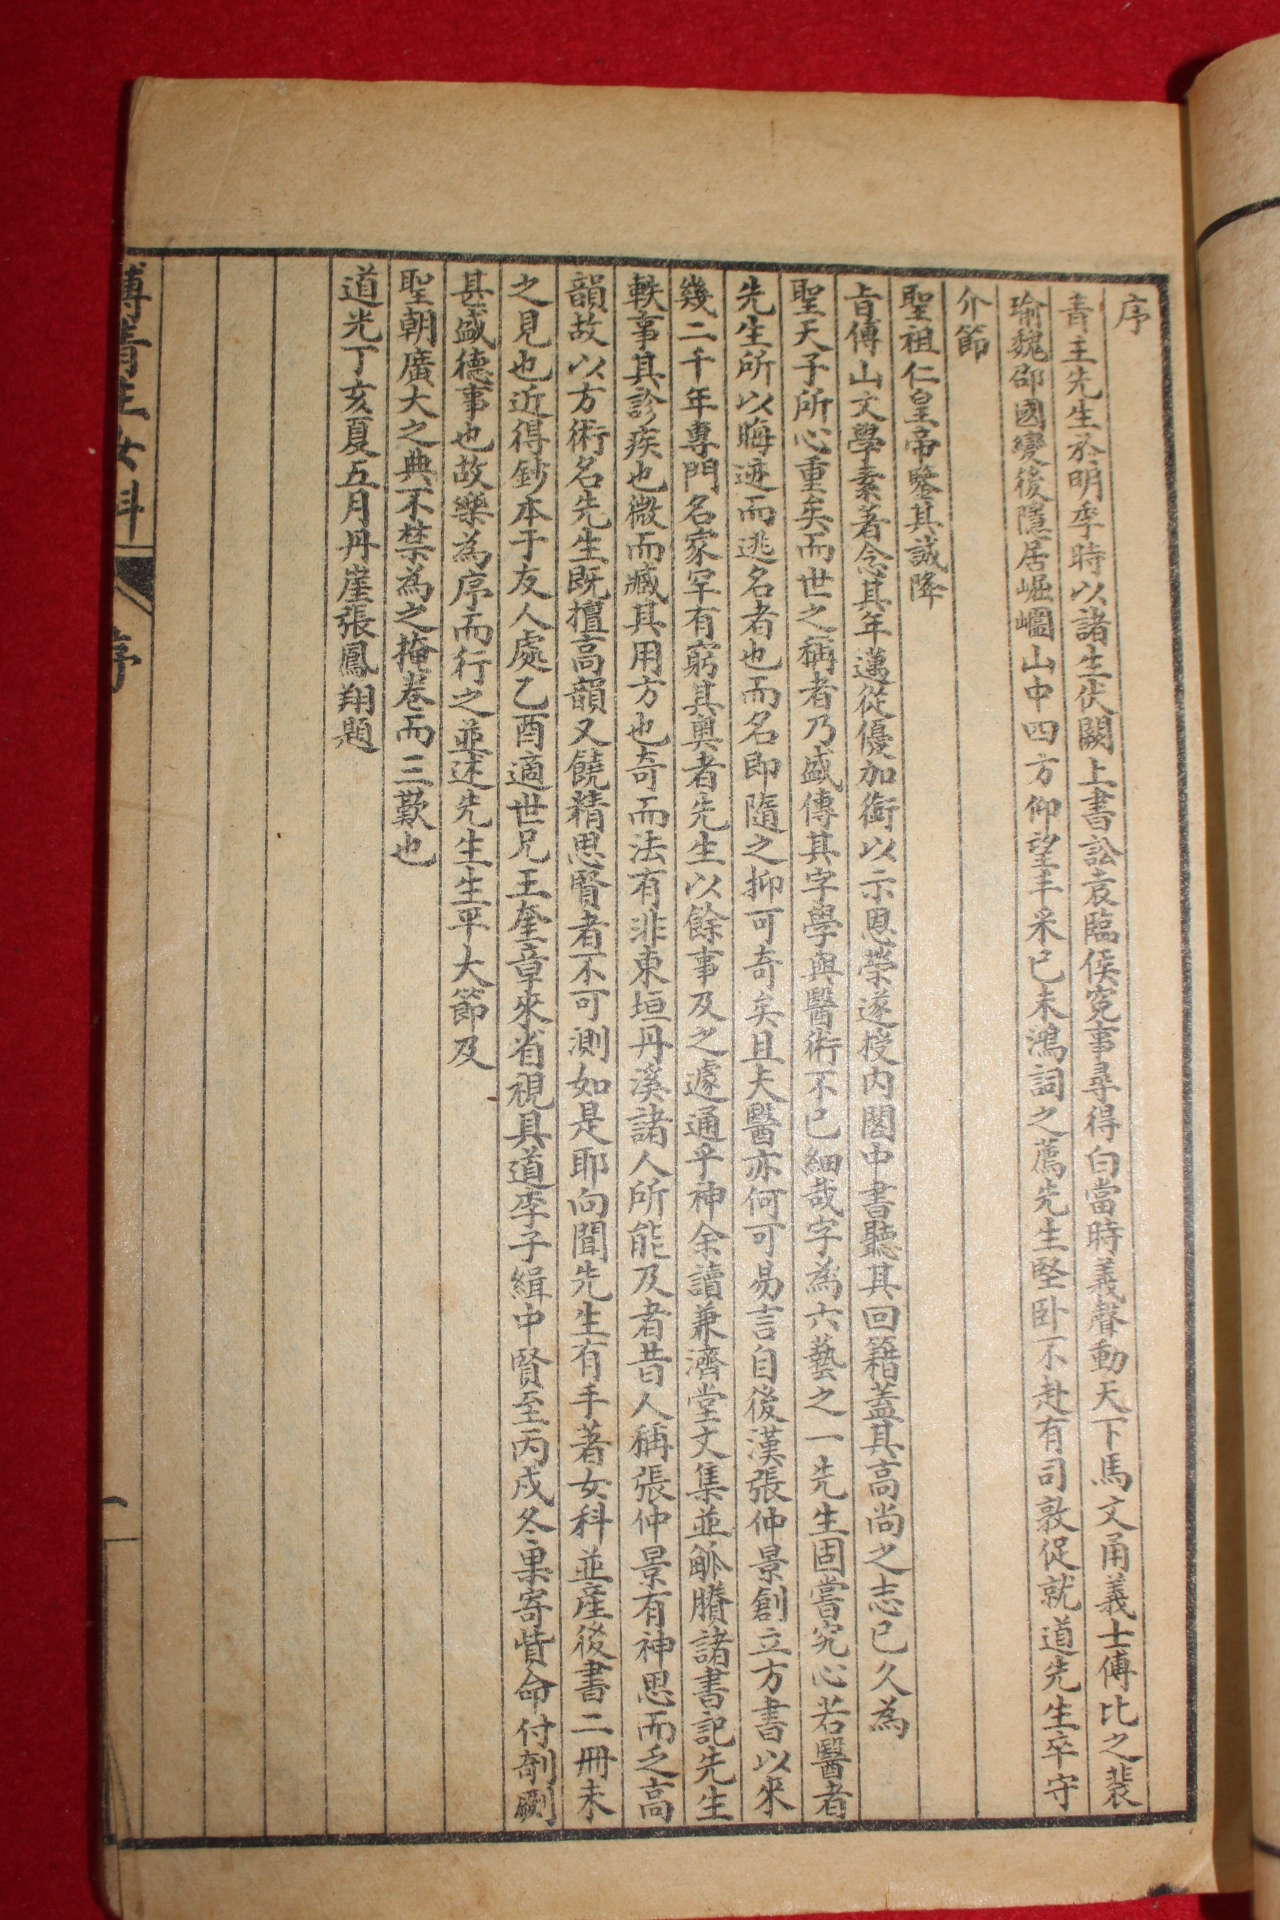 序
青主先生於明季時以諸生伏闕上書訟袁臨侯寃事尋得白當時義聲動天下馬文甬義士傅比之裴
瑜魏邵國變後隱居崛𡾊山中四方仰望丰采已未鴻詞之薦先生堅卧不赴有司敦促就道先生卒守
介節
聖祖仁皇帝鑒其誠降
旨傅山文學素著念其年邁從優加銜以示恩榮遂授內閣中書聽其回籍蓋其高尚之志已久為
聖天子所心重矣而世之稱者乃盛傳其字學與醫術不已細哉字為六藝之一先生固嘗究心若醫者
先生所以晦迹而逃名者也而名即隨之抑可奇矣且夫醫亦何可易言自後漢張仲景創立方書以來
幾二千年專門名家罕有窮其奧者先生以餘事及之遽通乎神余讀兼濟堂文集並觚賸諸書記先生
軼事其診疾也微而臧其用方也奇而法有非東垣丹溪諸人所能及者昔人稱張仲景有神思而乏高
韻故以方術名先生既擅高韻又饒精思賢者不可測如是耶向聞先生有手著女科並産後書二冊未
之見也近得鈔本于友人處乙酉適世兄王奎章來省視具道李子緝中賢至丙戌冬果寄貲命付剞劂
甚盛德事也故樂為序而行之並述先生生平大節及
聖朝廣大之典不禁為之掩卷而三歎也
道光丁亥夏五月丹崖張鳳翔題
傅青主女科
序
一